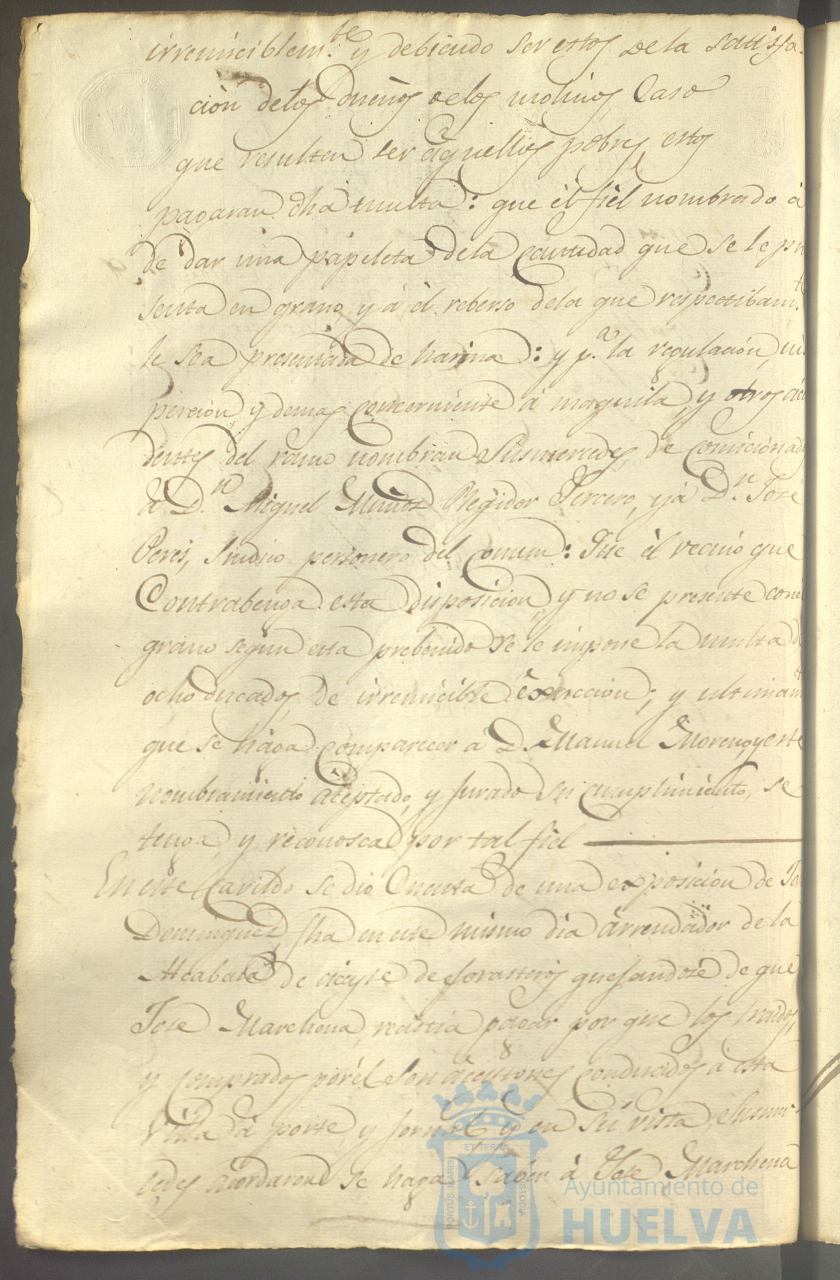 irremiciblem.te y debiendo ser estos de la satisfa-
ción delos Dueños delos molinos, Caso
que resulten ser aquellos pobres, estos
pagaran dha multa: que el fiel nombrado á
de dar una papeleta dela Cantidad que se le pre
senta en grano, y á el reberso dela que respectibam.te
le sea presentada de harina: y p.a la regulación,
percion, y demas concerniente a maquila, y otros
dentes del ramo nombran Susmercedes, de Comicionados
á D.n Miguel Muñoz Regidor Tercero, y á D.n José
Peres, Sindico personero del comun: Que el vecino que
Contrabenga esta disposicion, y no se presente con el
grano segun esta prebenido se le impone la multa de
ocho ducados, de irremicible exaccion; y ultimam.te
que se haga comparecer á D.n Manuel Moreno, y este
nombramiento aceptado, y jurado su cumplimiento, se
tenga, y reconosca por tal fiel
En este Cavildo se dio Cuenta de una exposicion de
Dominguez, fha en este mismo dia arrendador de la
Alcabala de aceyte de forasteros quejandose de que
Jose Marchena, reusa pagar por que los traidos,
y comprados por él son acestones conducidos a esta
Villa á porte, y jornal y en su vista, susmer-
sedes mandaron se haga saber á Jose Marchena
Ayuntamiento de
HUELVA